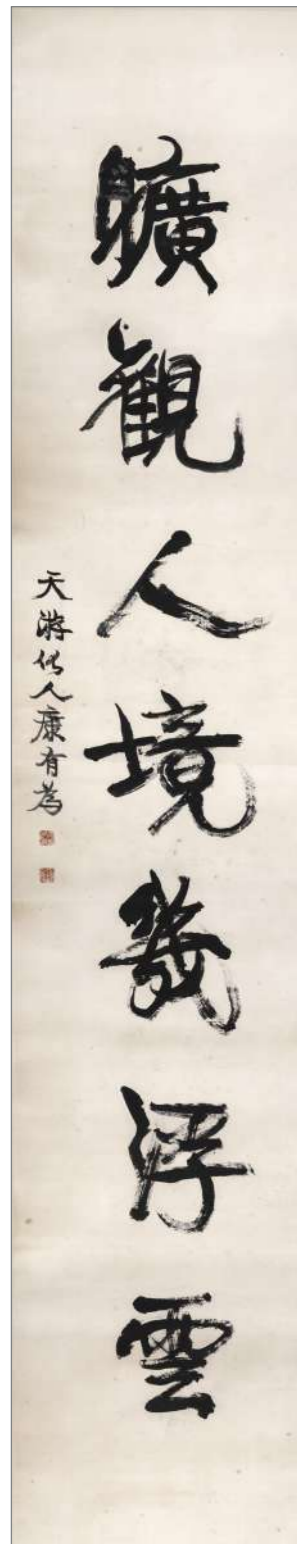 曠觀人境幾浮雲
天游化人康有為